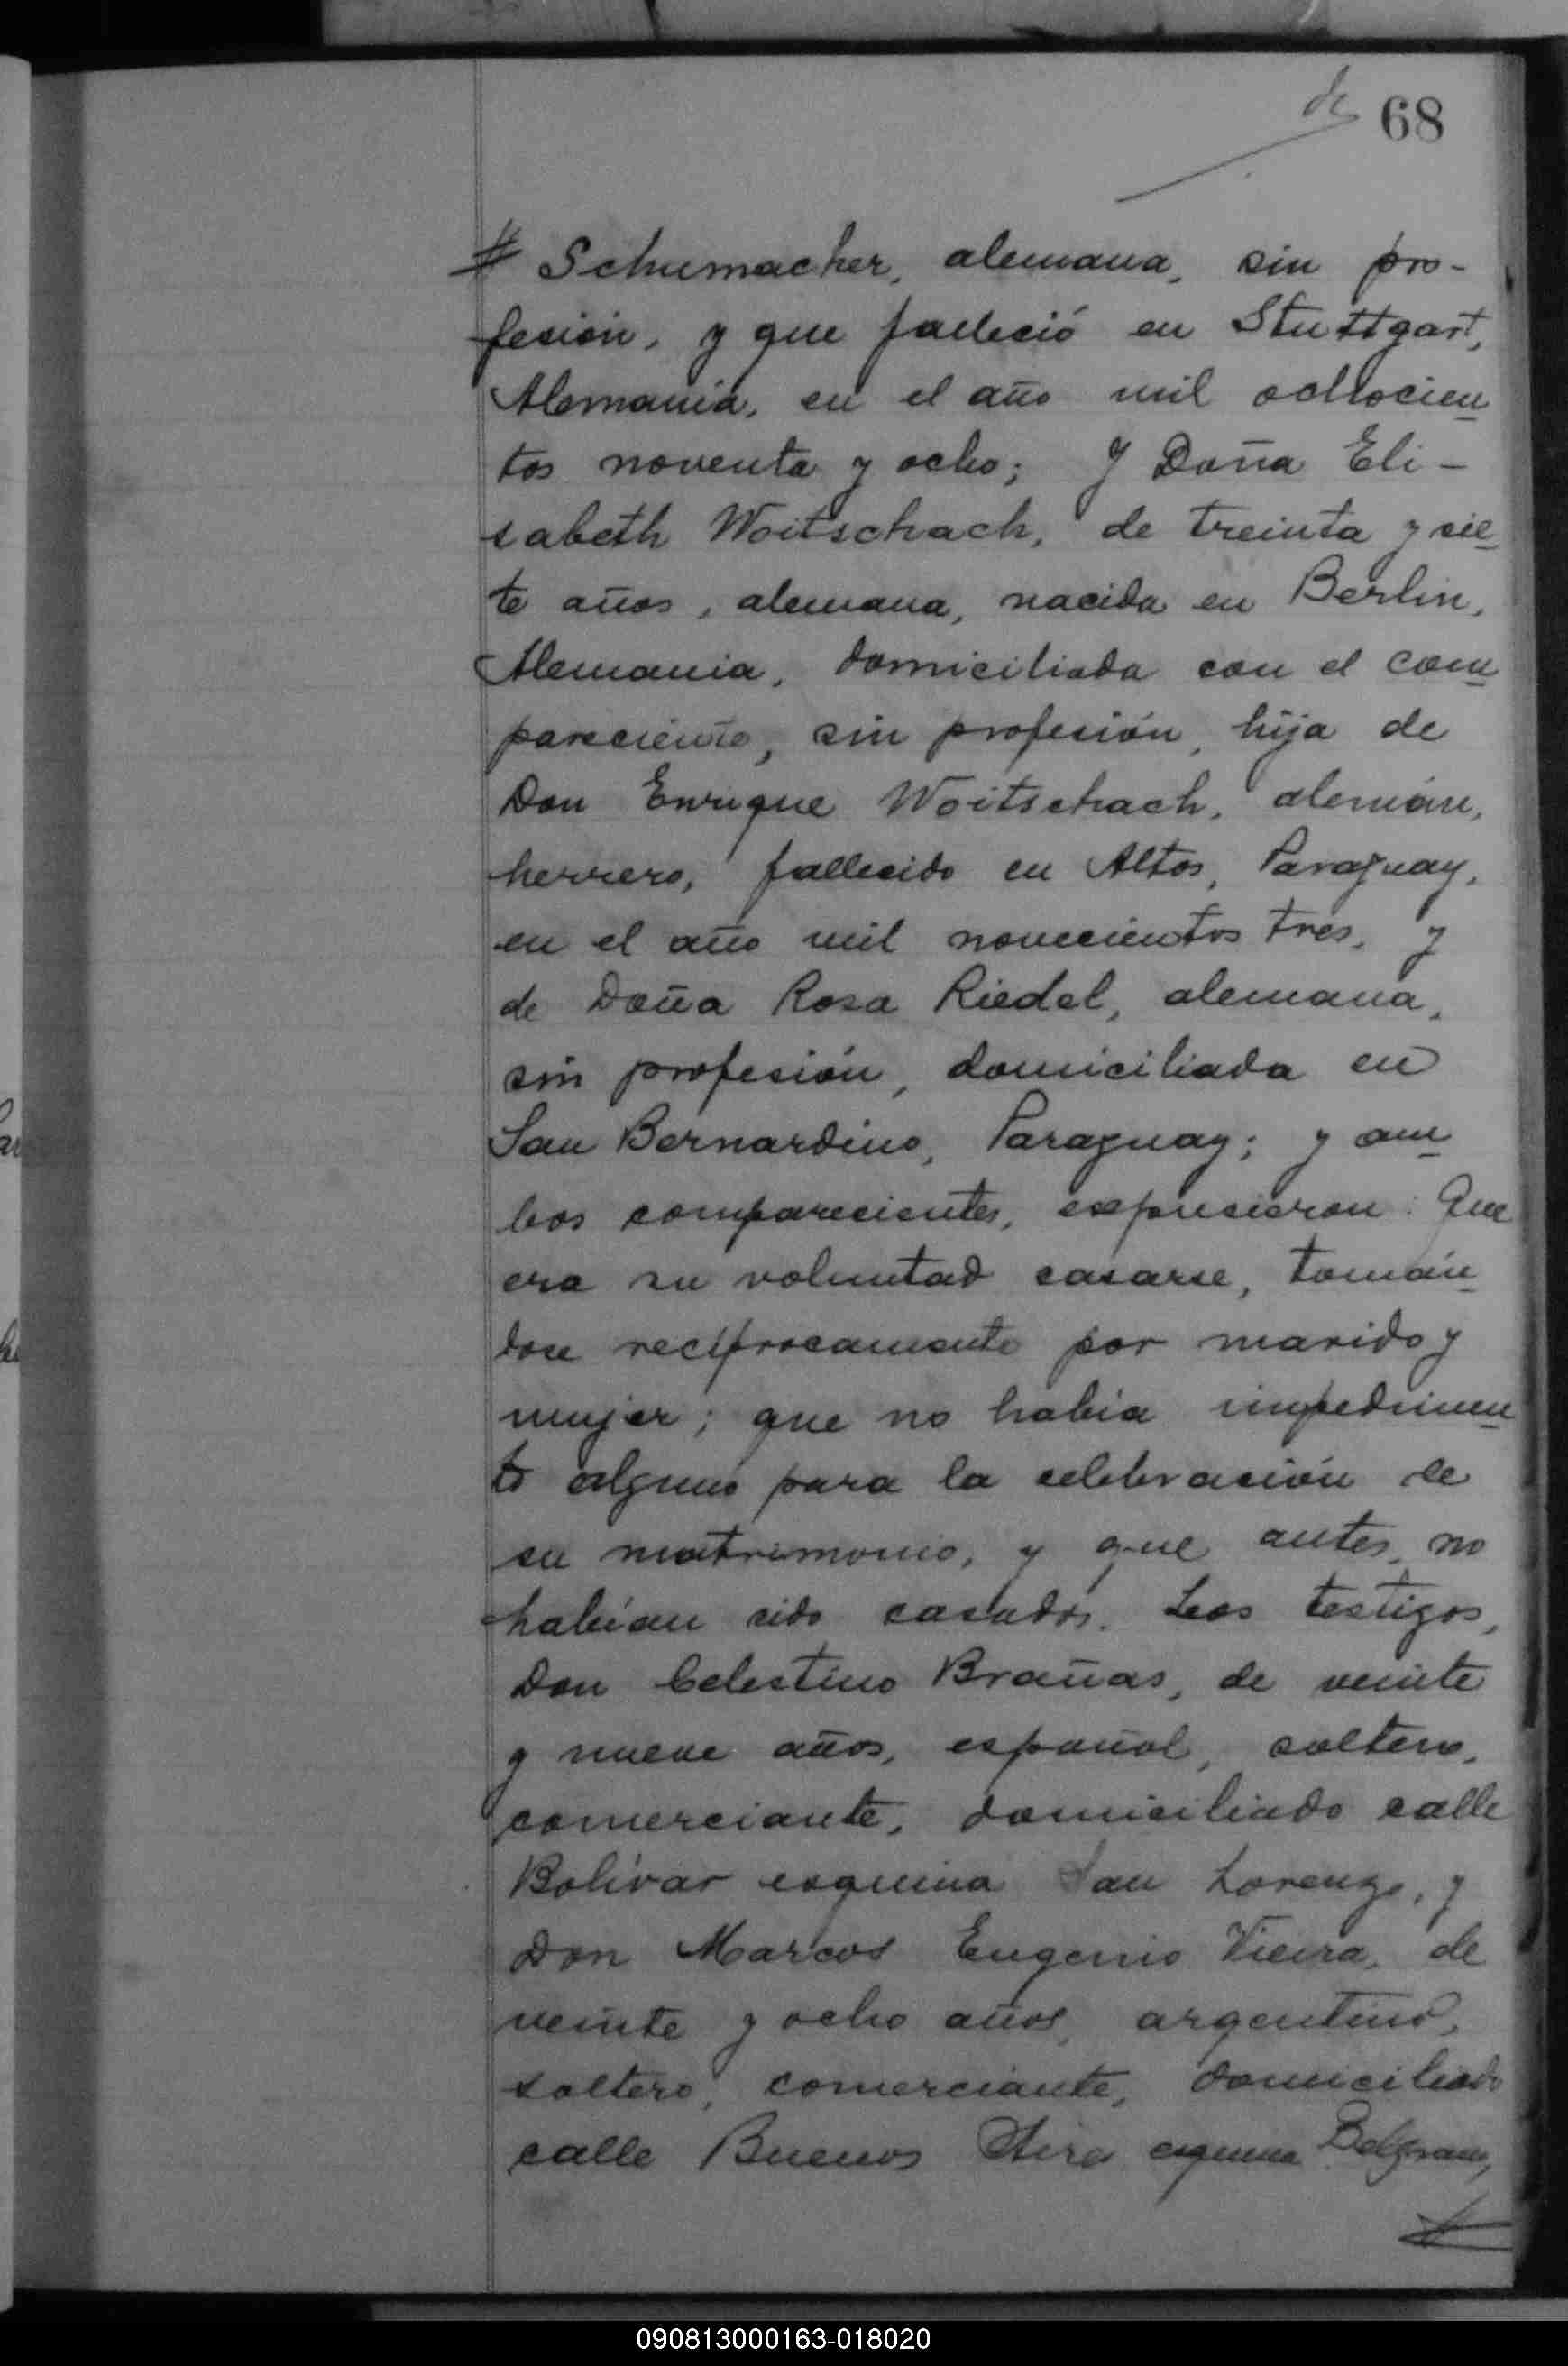 68
Schumacher, alemana, sin pro-
fesión, y que falleció en Stuttgart,
Alemania, en el año mil ochocien
tos noventa y ocho; Y Doña Eli-
sabeth Woitschach, de treinta y sie
te años, alemana, nacida en Berlin,
Alemania, domiciliada con el com
pareciente, sin profesión, hija de
Don Enrique Woitschach, alemán,
herrero, fallecido en Altos, Paraguay,
en el año mil novecientos tres, y
de Doña Rosa Riedel, alemana,
sin profesión, domiciliada en
San Bernardino, Paraguay; y am
bos comparecientes, expusieron: Que
era su voluntad casarse, tomán
dose recíprocamente por marido y
mujer; que no había impedimen
to alguno para la celebración de
su matrimonio, y que antes no
habían sido casados. Los testigos,
Don Celestino Brañas, de veinte
y nueve años, español, soltero,
comerciante, domiciliado calle
Bolívar esquina San Lorenzo, y
Don Marcos Eugenio Vieira, de
veinte y ocho años, argentino,
soltero, comerciante, domiciliado
calle Buenos Aires esquina Belgrano,
090813000163-018020